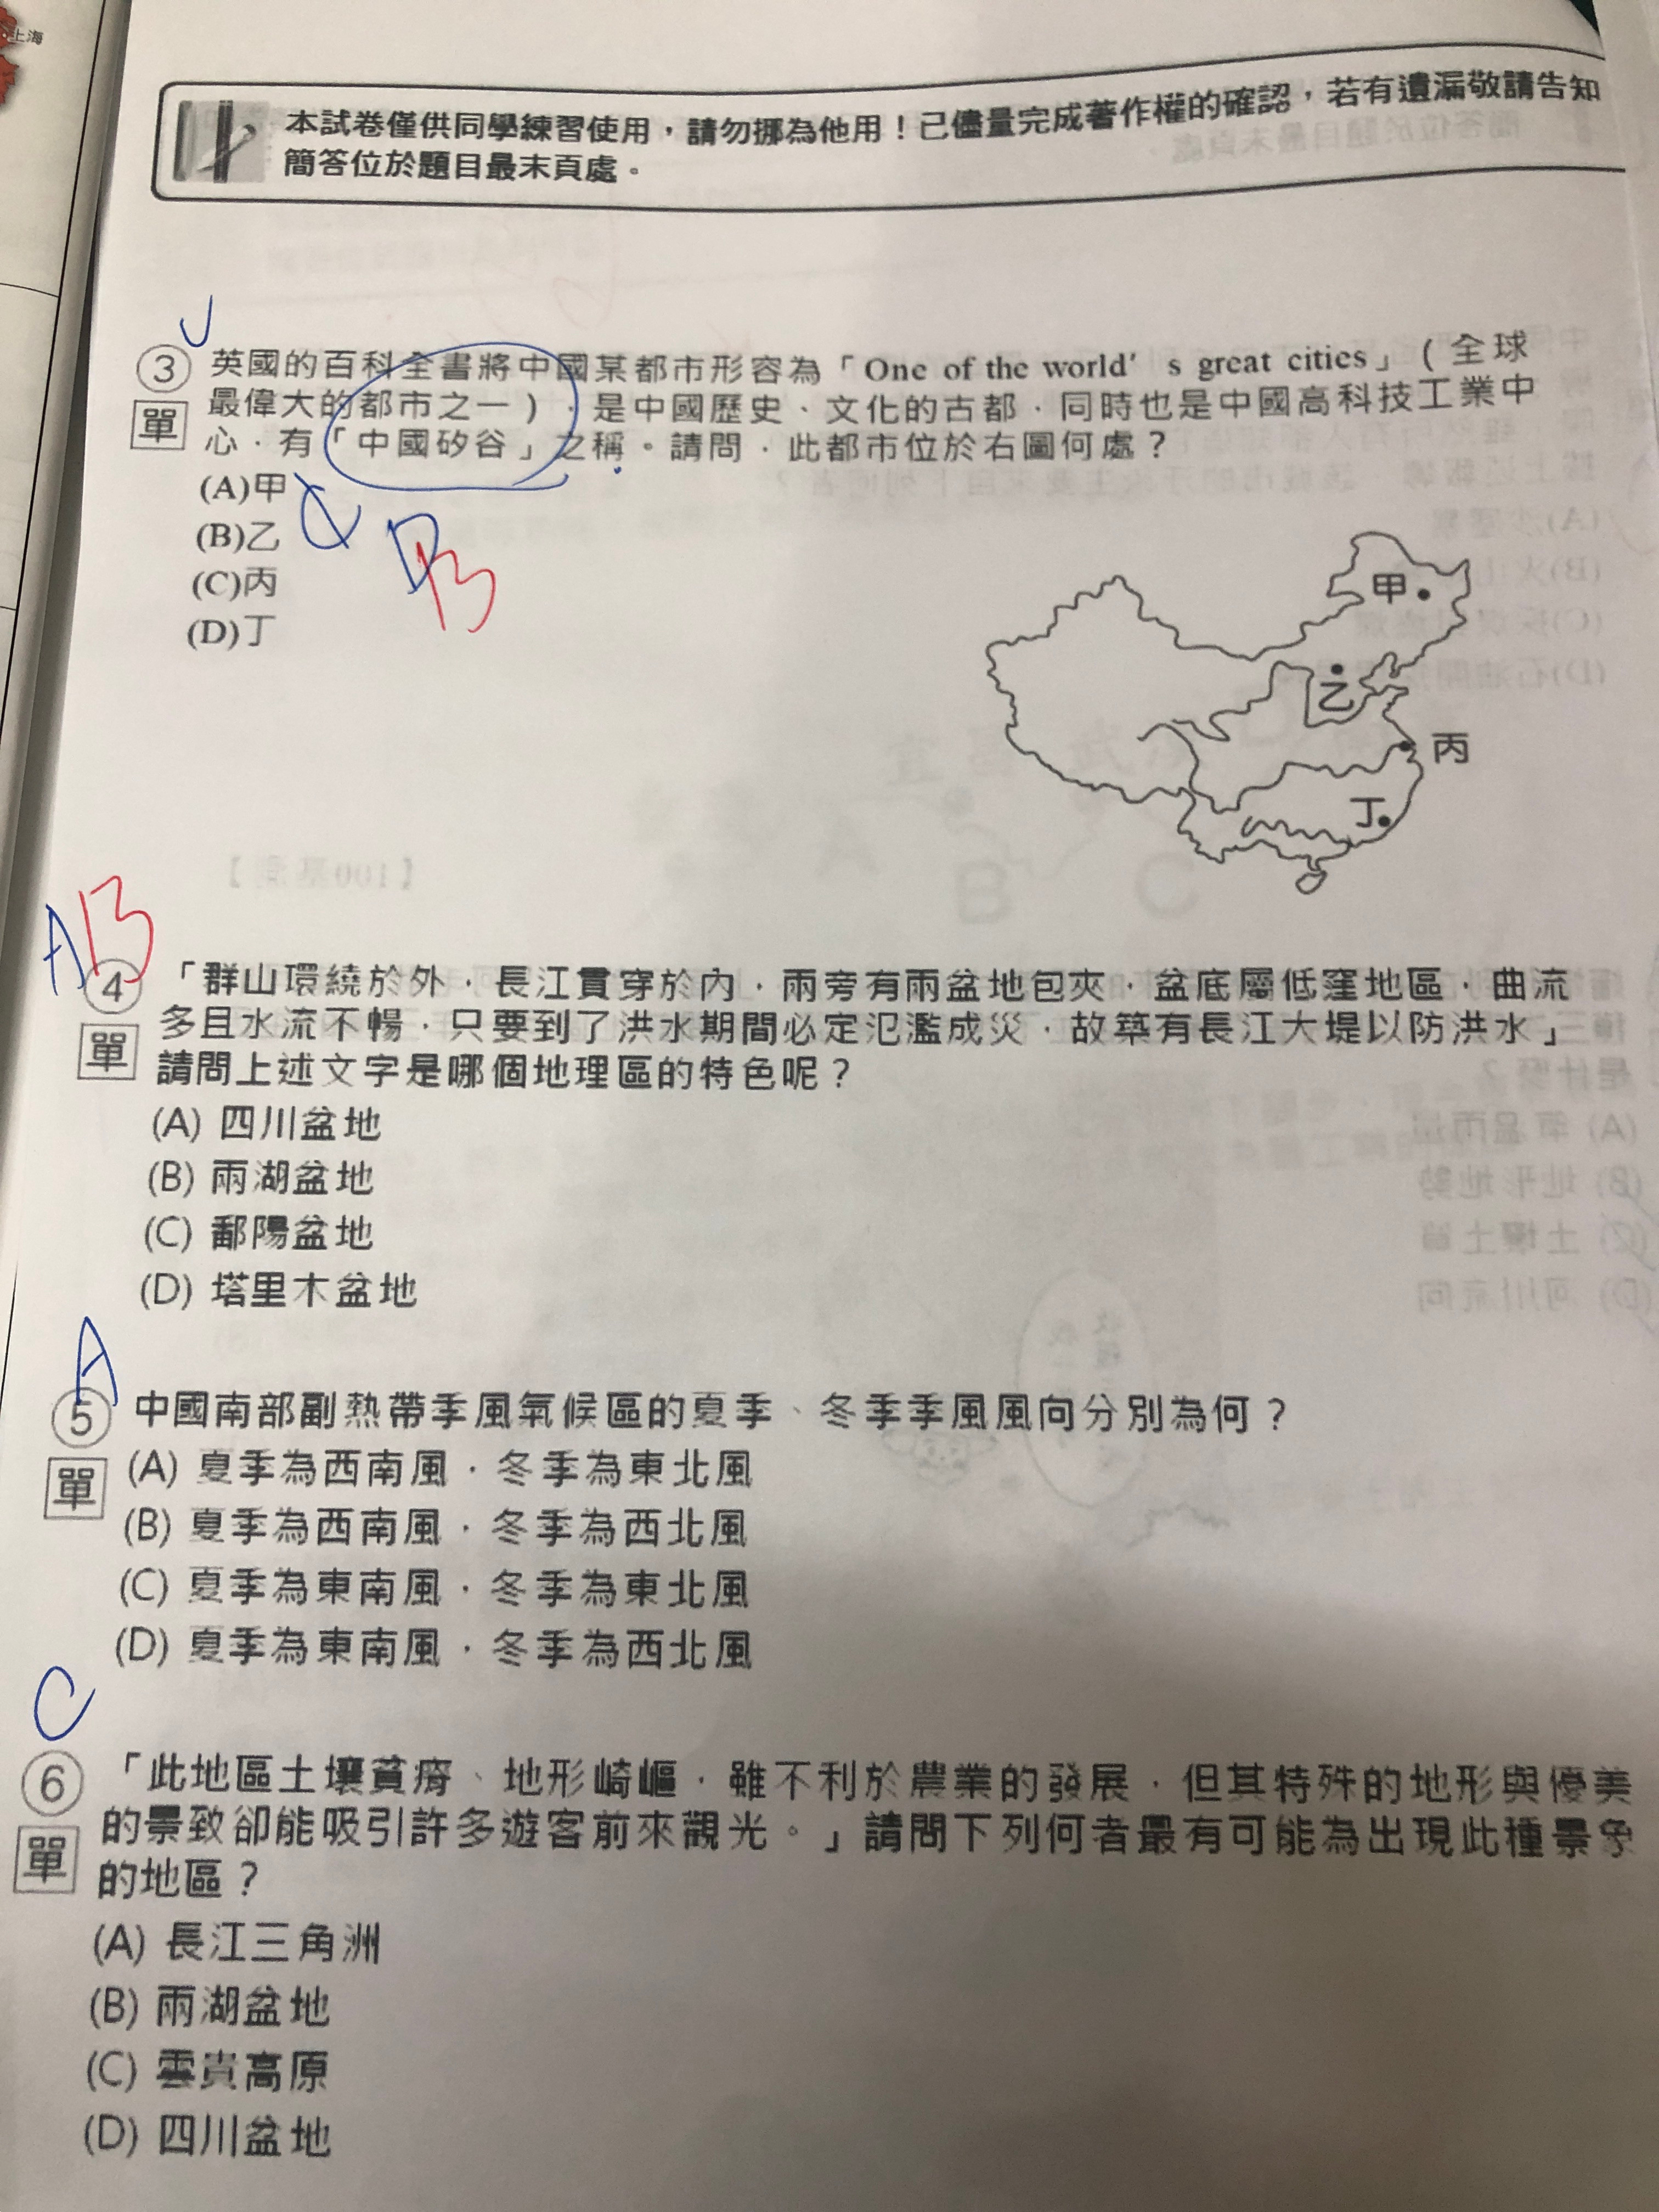 上海
本試卷僅供同學練習使用，請勿挪為他用！已儘量完成著作權的確認，若有遺漏敬請告知
簡答位於題目最末頁處。
③ 英國的百科全書將中國某都市形容為「One of the world's great cities」（全球
單 最偉大的都市之一），是中國歷史、文化的古都，同時也是中國高科技工業中
心，有「中國矽谷」之稱。請問，此都市位於右圖何處？
(A)甲
(B)乙
(C)丙
(D)丁
D B
甲
乙
丙
丁
A B
④ 「群山環繞於外，長江貫穿於內，兩旁有兩盆地包夾，盆底屬低窪地區，曲流
單 多且水流不暢，只要到了洪水期間必定氾濫成災，故築有長江大堤以防洪水」
請問上述文字是哪個地理區的特色呢？
(A) 四川盆地
(B) 兩湖盆地
(C) 鄱陽盆地
(D) 塔里木盆地
A
⑤ 中國南部副熱帶季風氣候區的夏季、冬季季風風向分別為何？
單 (A) 夏季為西南風，冬季為東北風
(B) 夏季為西南風，冬季為西北風
(C) 夏季為東南風，冬季為東北風
(D) 夏季為東南風，冬季為西北風
C
⑥ 「此地區土壤貧瘠、地形崎嶇，雖不利於農業的發展，但其特殊的地形與優美
單 的景致卻能吸引許多遊客前來觀光。」請問下列何者最有可能為出現此種景象
的地區？
(A) 長江三角洲
(B) 兩湖盆地
(C) 雲貴高原
(D) 四川盆地